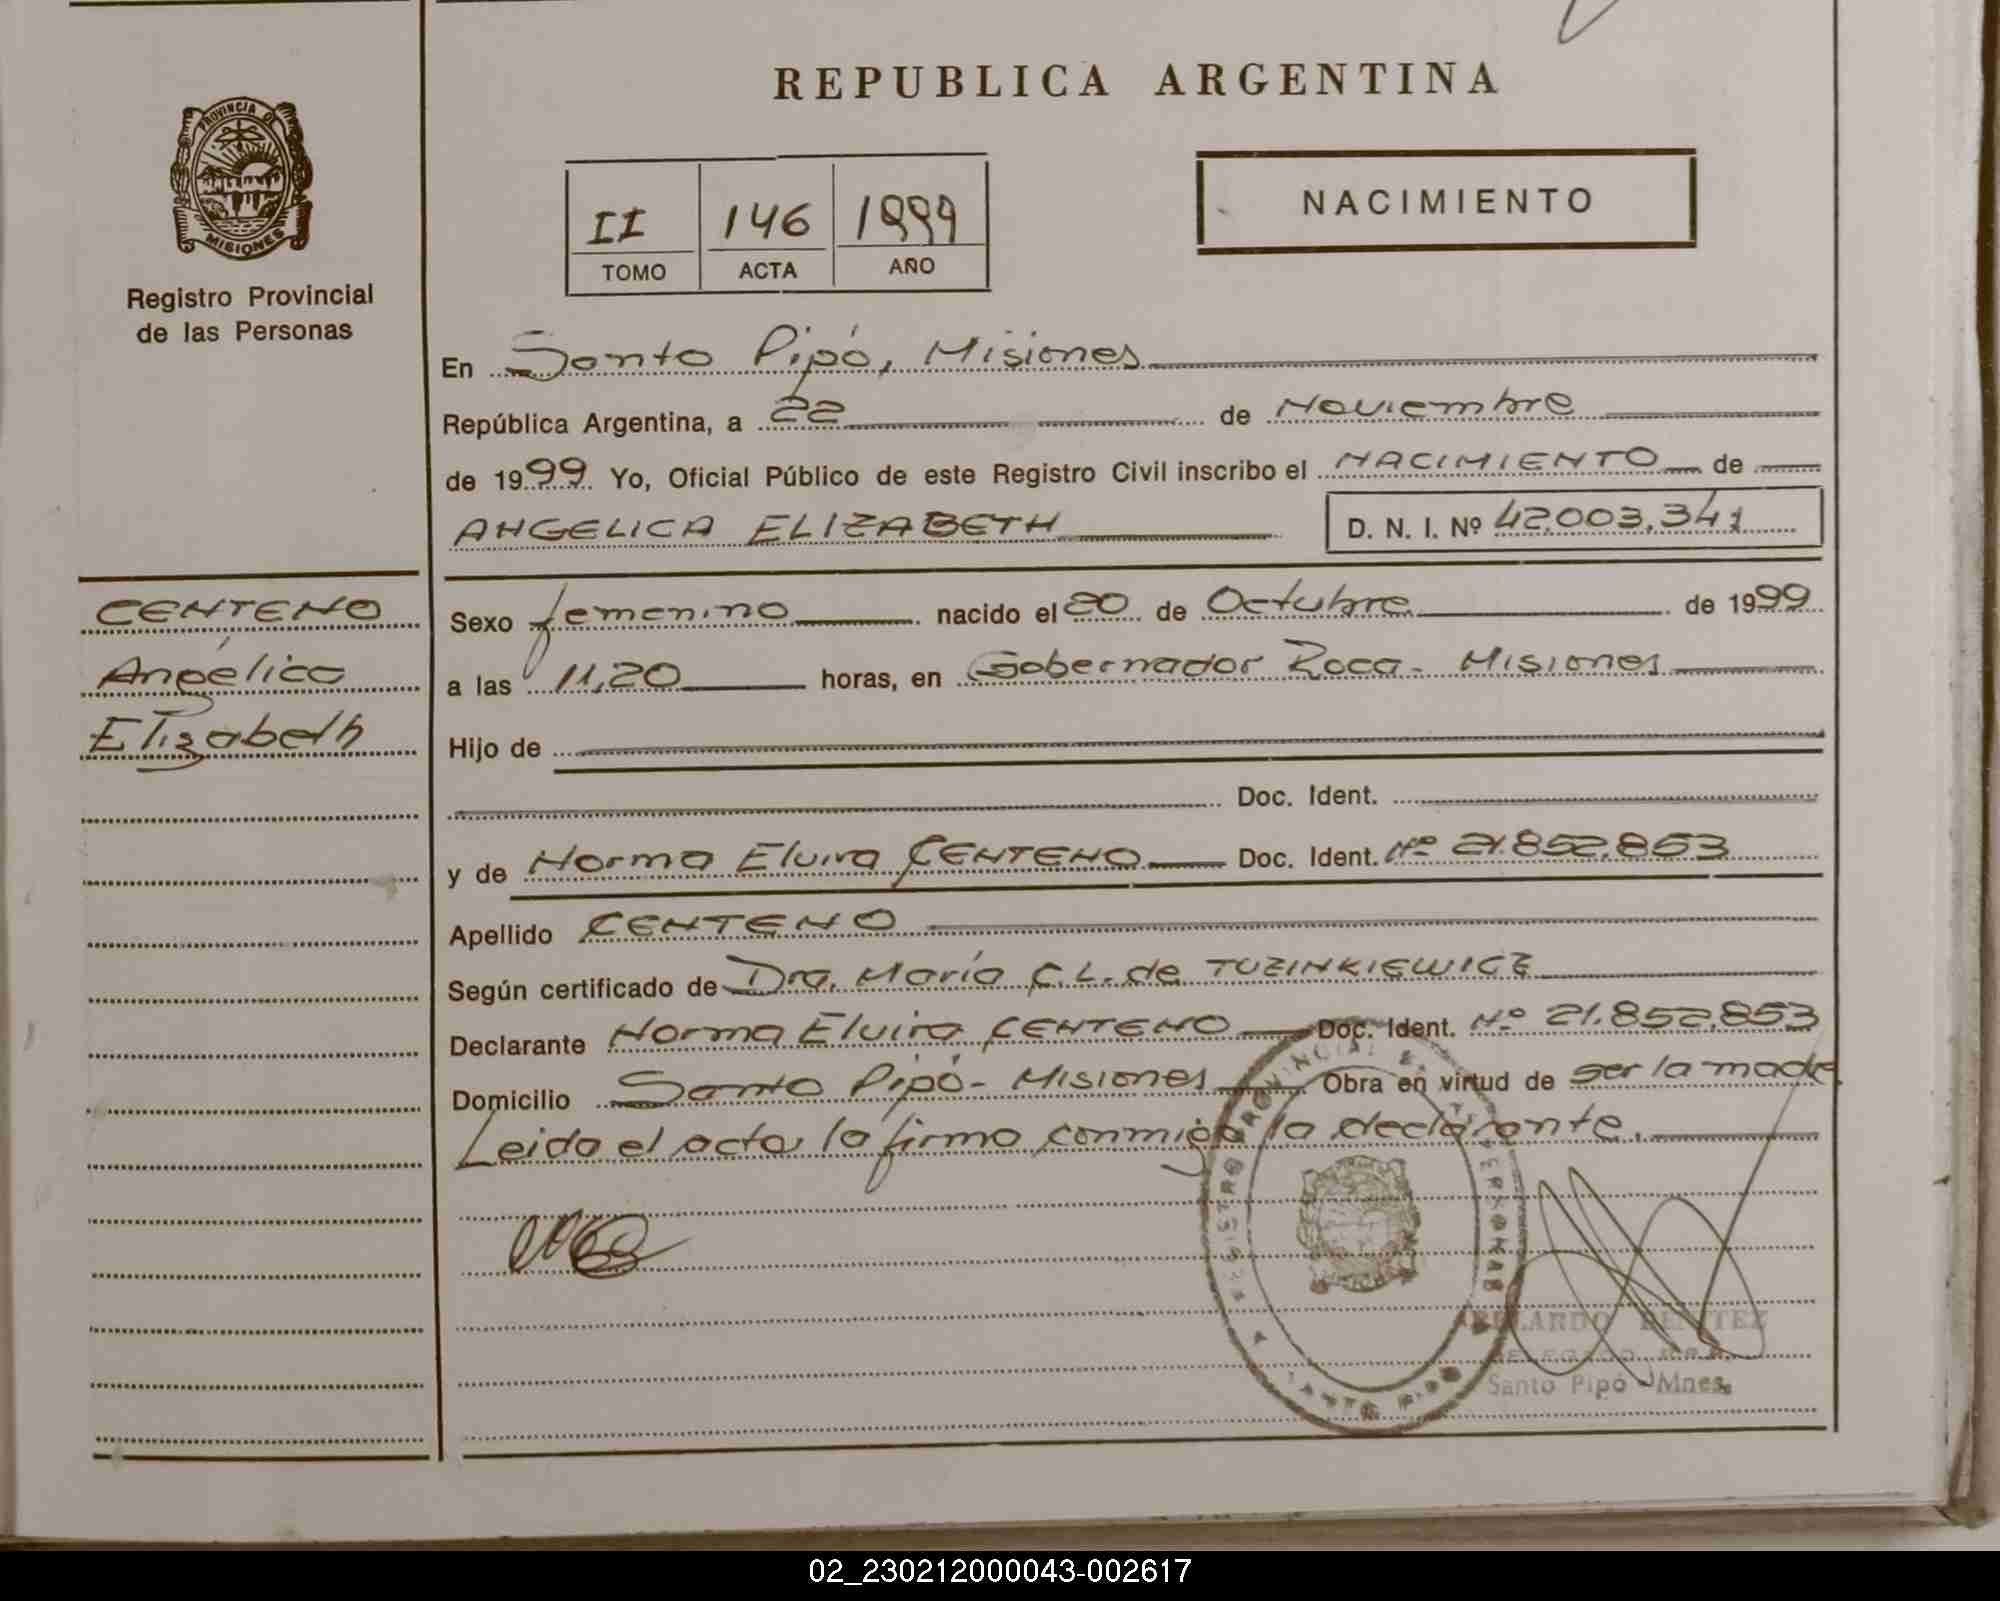 REPUBLICA ARGENTINA
PROVINCIA DE
MISIONES
Registro Provincial
de las Personas
II 146 1999
TOMO ACTA AÑO
NACIMIENTO
En Santo Pipó, Misiones
República Argentina, a 22 de Noviembre
de 1999 Yo, Oficial Público de este Registro Civil inscribo el NACIMIENTO de
ANGELICA ELIZABETH D. N. I. Nº 42.003.341
CENTENO
Angélica
Elizabeth
Sexo femenino nacido el 20 de Octubre de 1999
a las 11,20 horas, en Gobernador Roca - Misiones
Hijo de
Doc. Ident.
y de Norma Elvira CENTENO Doc. Ident. Nº 21.852.853
Apellido CENTENO
Según certificado de Dra. María C. L. de TUZINKIEWICZ
Declarante Norma Elvira CENTENO Doc. Ident. Nº 21.852.853
Domicilio Santo Pipó - Misiones Obra en virtud de ser la madre
Leida el acta, la firma conmigo la declarante.
BENITEZ
DELEGADO
Santo Pipó - Mnes.
02_230212000043-002617